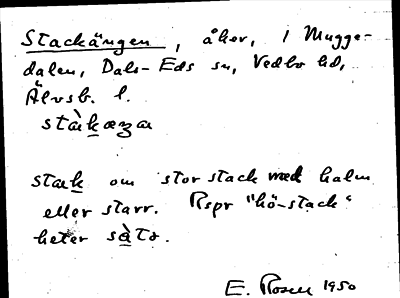 Stackängen, åker, i Mugge-
dalen, Dals-Eds sn, Vedbo hd,
Älvsb. l.
stàkæŋa
stak om stor stack med halm
eller starr. Rspr "hö-stack"
heter såta.
E. Rosell 1950